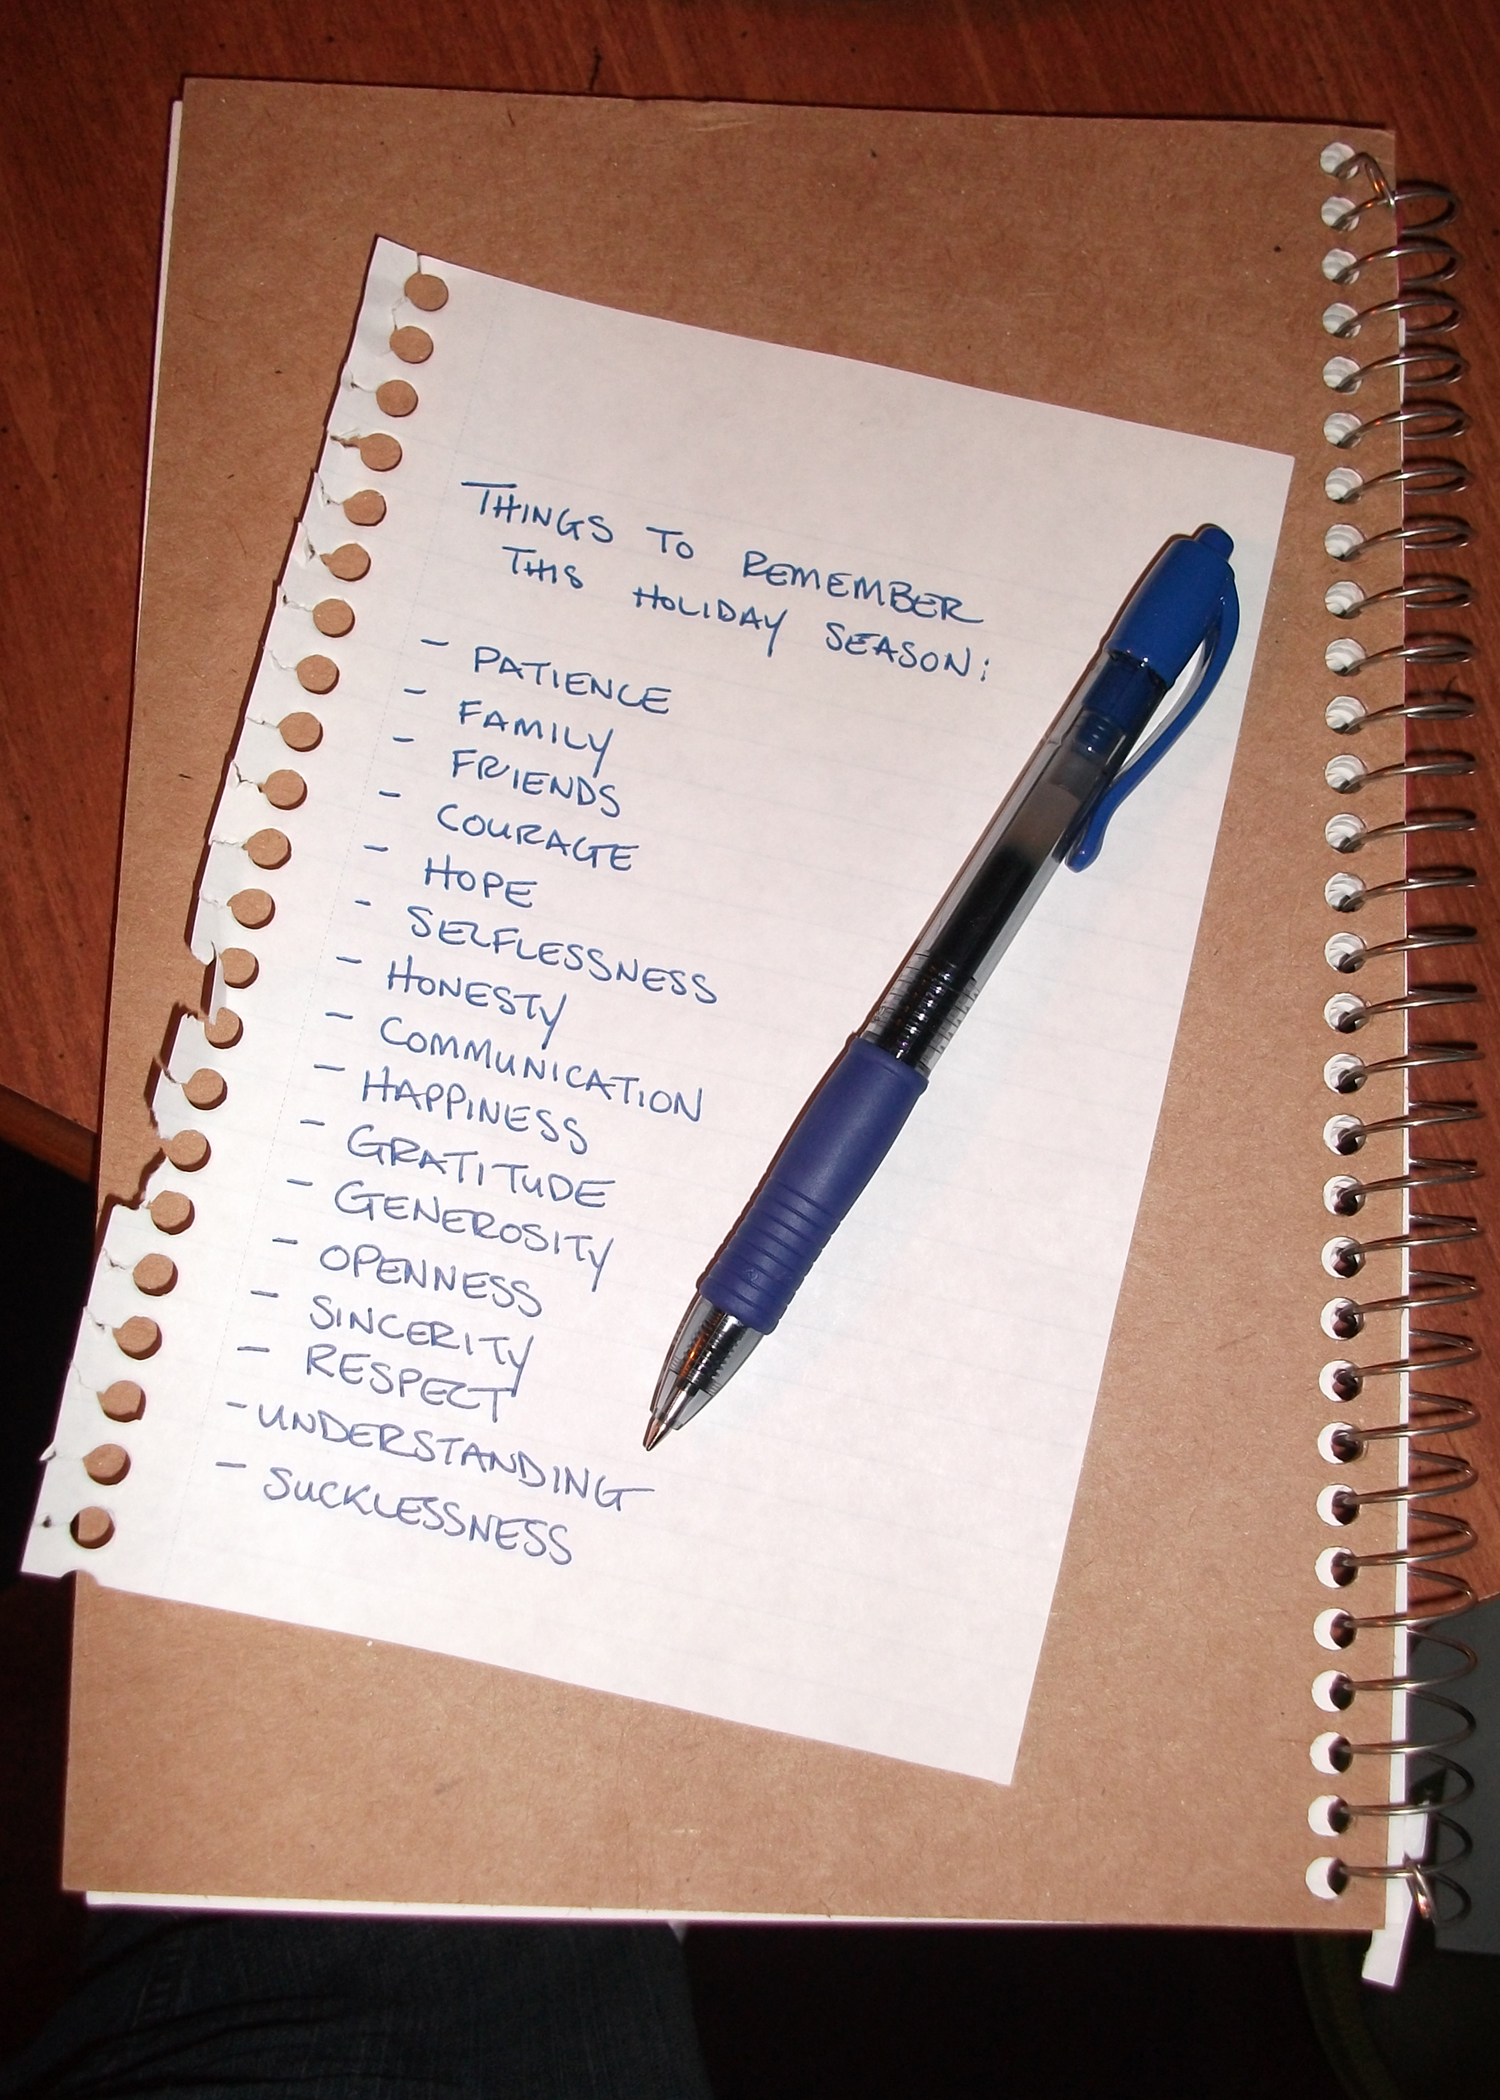 THINGS TO REMEMBER
THIS HOLIDAY SEASON:
- PATIENCE
- FAMILY
- FRIENDS
- COURAGE
- HOPE
- SELFLESSNESS
- HONESTY
- COMMUNICATION
- HAPPINESS
- GRATITUDE
- GENEROSITY
- OPENNESS
- SINCERITY
- RESPECT
- UNDERSTANDING
- SUCKLESSNESS